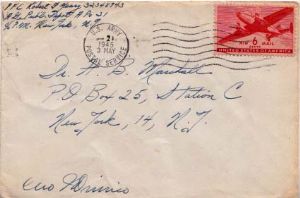 Pfc Robert
New York, N.Y.
U.S. ARMY
2
1945
3 MAY
POSTAL SERVICE
AIR 6¢ MAIL
UNITED STATES OF AMERICA
Dr. H. B. Marshall
P.O Box 25, Station C
New York, 14, N.Y.